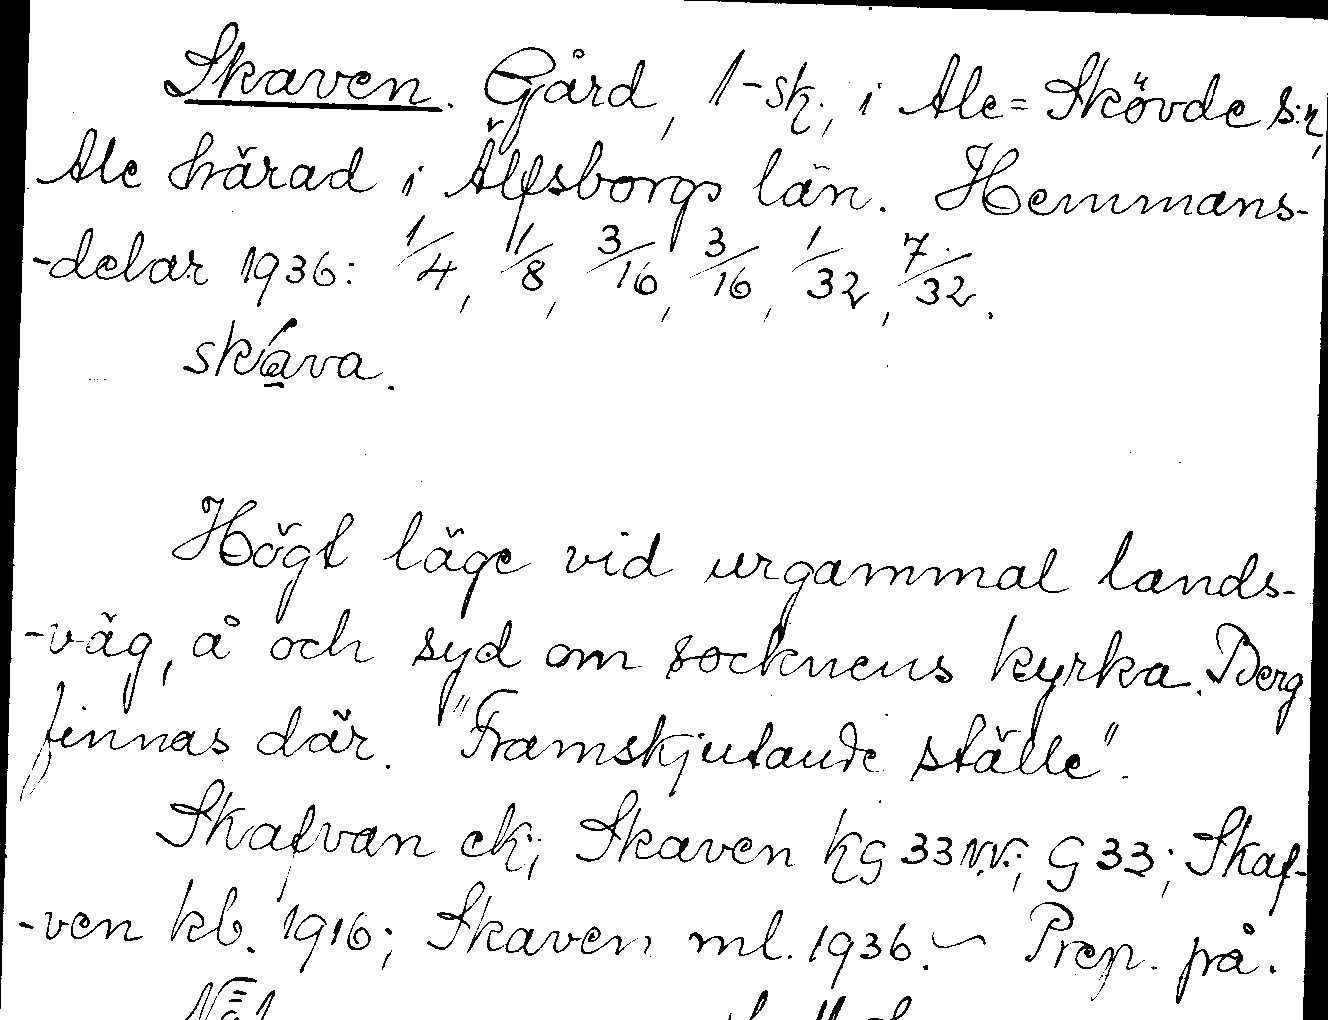 Skaven. Gård, 1-sk., i Ale=Skövde s:n,
Ale härad i Älfsborgs län. Hemmans-
-delar 1936: 1/4, 1/8, 3/16, 3/16, 1/32, 7/32.
skava.
Högt läge vid urgammal lands-
-väg, å och syd om socknens kyrka. Berg
finnas där. "Framskjutande ställe".
Skafvan ek; Skaven kg 33 NV; G 33; Skaf-
-ven kb. 1916; Skaven ml. 1936. – Prep. på.